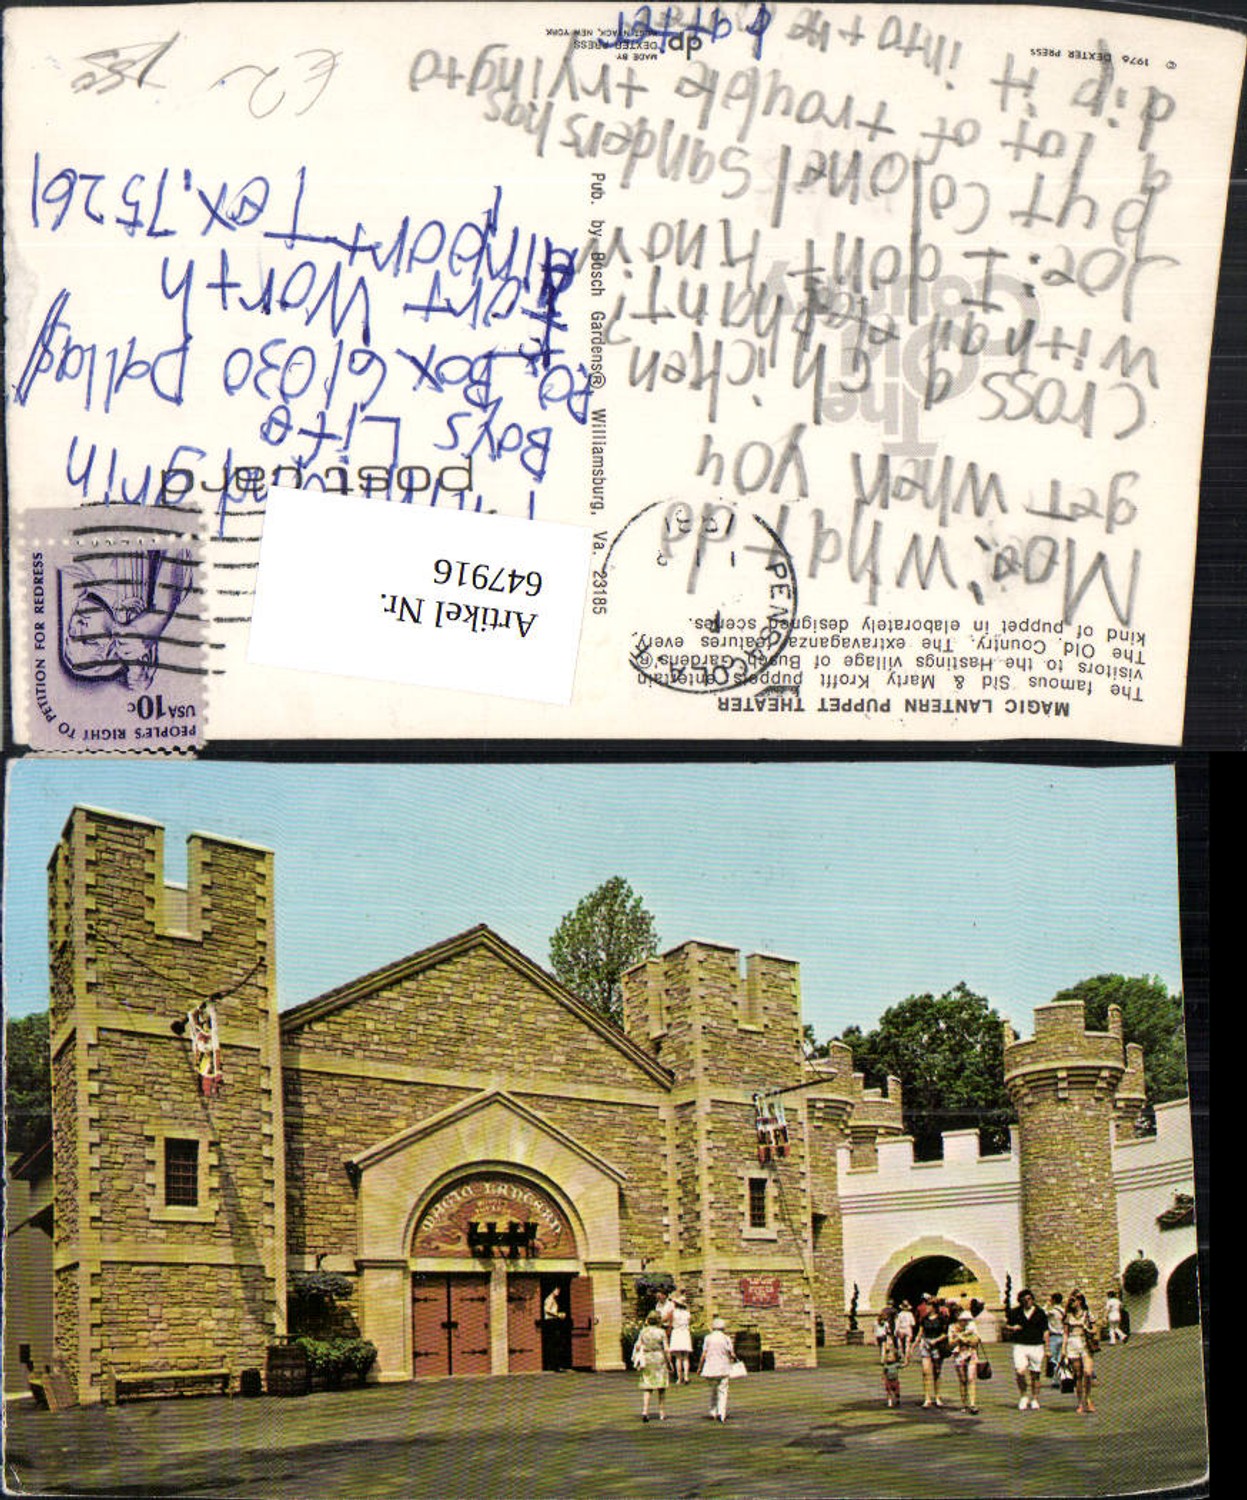 MAGIC LANTERN PUPPET THEATER
The famous Sid & Marty Krofft puppets entertain
visitors to the Hastings village of Busch Gardens®
The Old Country. The extravaganza features every
kind of puppet in elaborately designed scenes.
Moe: what do
get when you
cross a chicken
with an elephant?
Joe: I don't know
but Colonel Sanders has
a lot of trouble trying to
dip it into the
batter
The
Old
Country
PENSACOLA
1981
Pub. by Busch Gardens® Williamsburg, Va. 23185
© 1976 DEXTER PRESS
dp
MADE BY
DEXTER PRESS
WEST NYACK, NEW YORK
PEOPLE'S RIGHT TO PETITION FOR REDRESS
USA 10c
post card
Artikel Nr.
647916
grin
Boys Life
P.O. Box 61030 Dallas
Fort Worth
airport Tex. 75261
MAGIC LANTERN